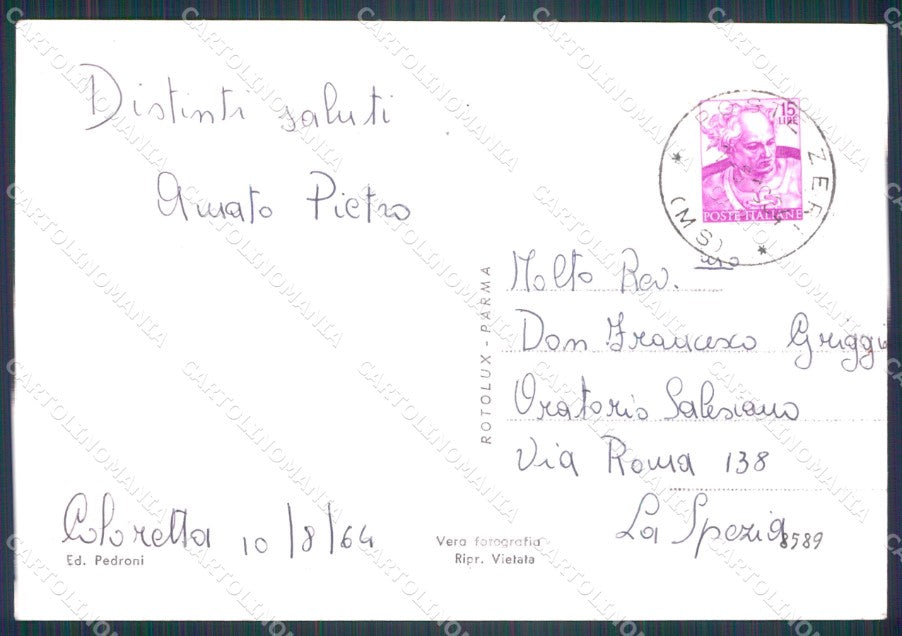 Distinti saluti
Amato Pietro
15
LIRE
POSTE ITALIANE
ZERI
(MS)
Molto Rev.
Don Francesco Griggio
Oratorio Salesiano
Via Roma 138
La Spezia
8589
ROTOLUX - PARMA
Coloretta 10/8/64
Ed. Pedroni
Vera fotografia
Ripr. Vietata
CARTOLINOMANIA